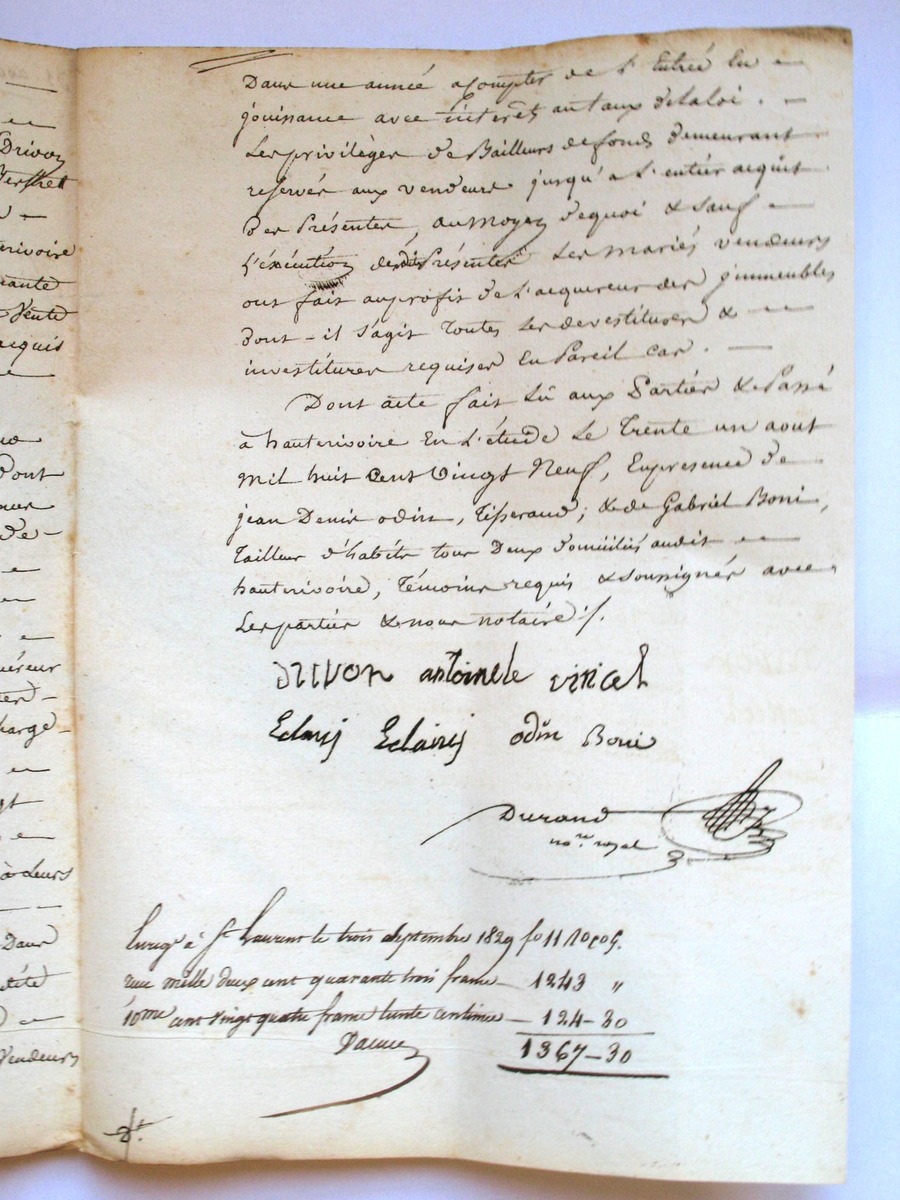 Drivon
Verset
erivoire
Vente
acquis
Dont
de-
quéreur
charge
à Leurs
Dans
Vendeurs
Dans une année a Compter de l'Entrée En
jouissance avec interêt au taux de la loi.
Les privilèges de Bailleurs de fonds demeurant
reservés aux vendeurs jusqu'a l'entier acquit
des Présentes, au moyen de quoi & sauf
L'éxécution des Présentes Les mariés vendeurs
ont fait au profit de L'acquereur des jmmeubles
dont-il s'agit Toutes Les devestitures &
investitures requises En Pareil cas.
Dont acte fait Lû aux Parties & Passé
à hauterivoire En L'étude Le Trente un aout
mil huit Cent Vingt Neuf, En presence de
jean Denis odin, Tisserand; & de Gabriel Boni,
Tailleur d'habits tous Deux domiciliés audit
hauterivoire, Témoins requis & soussignés avec
Les parties & nous notaire /.
drivon antoinete vincel
Eclairij odin Boni
Durand
no.re royal
Enregé à St Laurent le trois septembre 1829 fo 11
reçu mille deux cent quarante trois francs — 1243 "
10me cent vingt quatre francs trente centimes — 124-30
1367-30